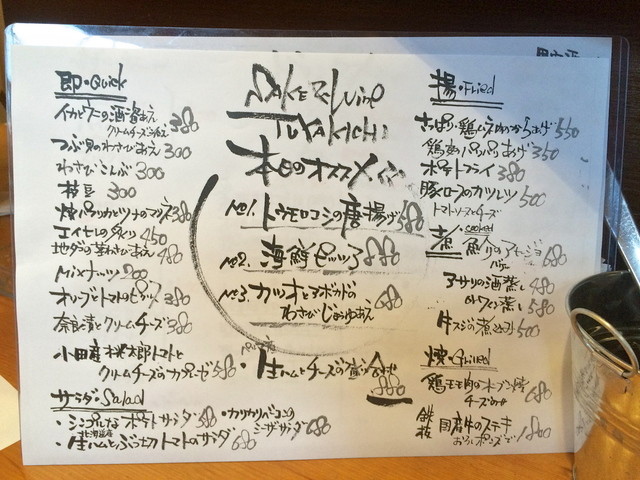 即・Quick
クリームチーズ添え 380
つぶ貝のわさびあえ 300
わさびこんぶ 300
枝豆 300
エイヒレの炙り 450
地ダコの茎わさびあえ 480
MIXナッツ 200
オリーブとトマトのピクルス 380
奈良漬とクリームチーズ 380
小田産桃太郎トマトと
クリームチーズのカプレーゼ 580
サラダ・Salad
・シンプルなポテトサラダ 380
・カリカリベーコンの
シーザーサラダ 680
・北海道産
生ハムとぶつ切トマトのサラダ 680
SAKE & Wine
TUYAKICHI
本日のオススメ
No1. トウモロコシの唐揚げ 580
No2. 海鮮ピッツァ 880
No3. カツオとアボカドの
わさびじょうゆあえ 680
・生ハムとチーズの盛り合わせ
880
揚・Fried
さっぱり・鶏ムネ肉のからあげ 550
鶏皮のパリパリあげ 350
ポテトフライ 380
豚ロースのカツレツ 500
トマトソースとチーズ
煮・cooked
魚介のアヒージョ 680
アサリの酒蒸し 480
白ワイン蒸し 580
牛スジの煮込み 500
焼・Grilled
鶏モモ肉のオーブン焼
チーズのせ 680
鉄板 国産牛のステーキ
おろしポン酢で 1,800